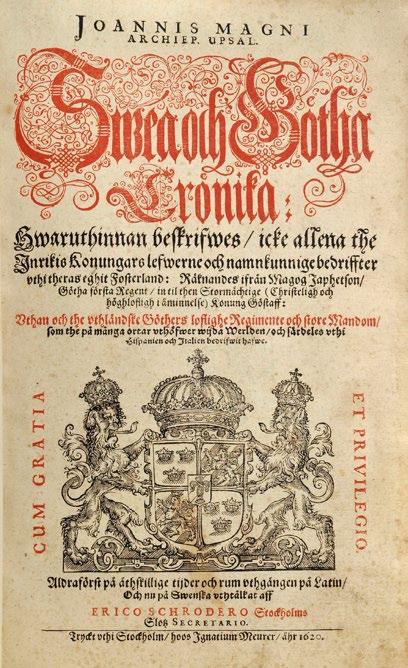 JOANNIS MAGNI
ARCHIEP. UPSAL.
Swéa och Götha
Crönika:
Hwaruthinnan beskrifwes / icke allena the
Inrikis Konungars lefwerne och namnkunnige bedriffter
vthi theras eghit Fosterland: Räknandes ifrån Magog Japhetson /
Götha första Regent / in til then Stormächtige (Christeligh och
höghlofligh i åminnelse) Konung Göstaff:
Vthan och the vthländske Göthers loflighe Regimente och store Mandom /
som the på många ortar vthöfwer wijda Werlden / och särdeles vthi
Hispanien och Italien bedrifwit hafwe.
CUM GRATIA
ET PRIVILEGIO.
Aldraförst på åthskillige tijder och rum vthgången på Latin /
Och nu på Swenska vthtålkat aff
ERICO SCHRODERO Stockholms
Slotz SECRETARIO.
Tryckt vthi Stockholm / hoos Ignatium Meurer / åhr 1620.